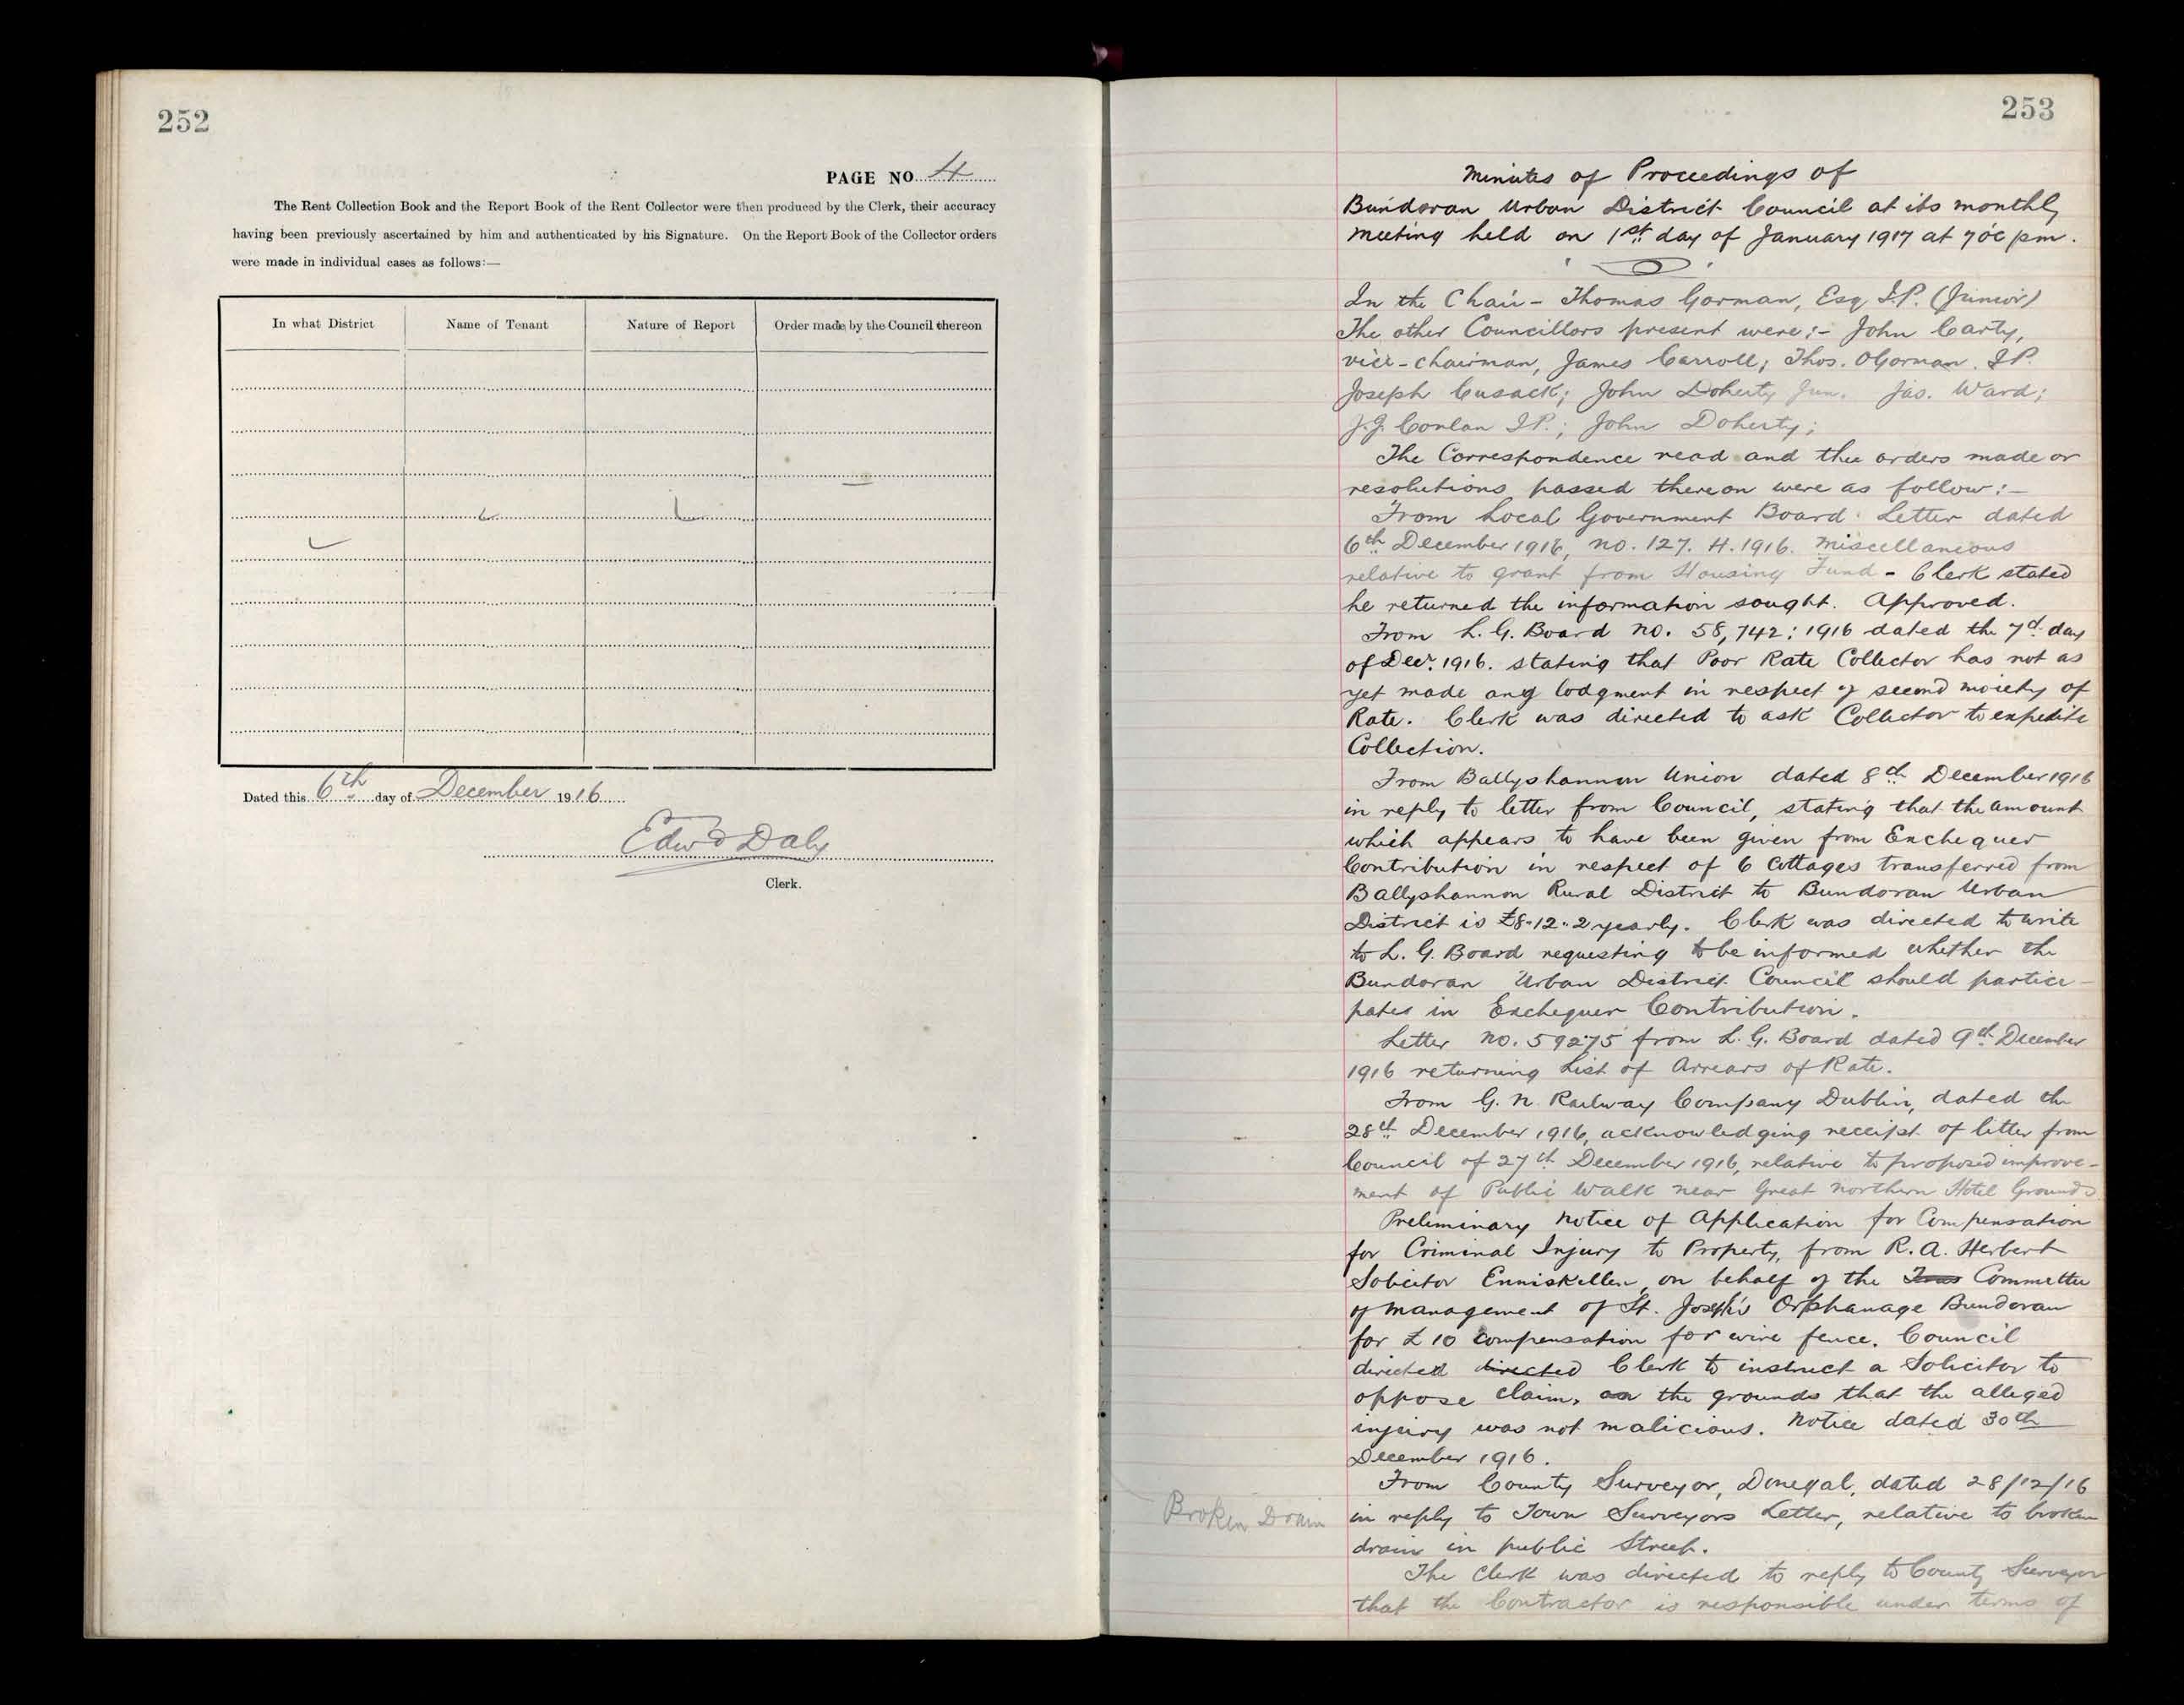 252
PAGE NO. 4
The Rent Collection Book and the Report Book of the Rent Collector were then produced by the Clerk, their accuracy
having been previously ascertained by him and authenticated by his Signature. On the Report Book of the Collector orders
were made in individual cases as follows:—
In what District Name of Tenant Nature of Report Order made by the Council thereon
Dated this 6th day of December 1916
Edwd Daly
Clerk.
253
Minutes of Proceedings of
Bundoran Urban District Council at its monthly
meeting held on 1st day of January 1917 at 7 o'c pm.
In the Chair – Thomas Gorman, Esq J.P. (Junior)
The other Councillors present were:– John Carty,
vice-chairman, James Carroll; Thos. OGorman. J.P.
Joseph Cusack; John Doherty Jun. Jas. Ward;
J.J. Conlan J.P.; John Doherty;
The Correspondence read and the orders made or
resolutions passed thereon were as follow:–
From Local Government Board. Letter dated
6th December 1916, no. 127. H. 1916. Miscellaneous
relative to grant from Housing Fund - Clerk stated
he returned the information sought. Approved.
From L. G. Board no. 58,742: 1916 dated the 7d day
of Decr. 1916. stating that Poor Rate Collector has not as
yet made any lodgment in respect of second moiety of
Rate. Clerk was directed to ask Collector to expedite
Collection.
From Ballyshannon Union dated 8th December 1916
in reply to letter from Council, stating that the amount
which appears to have been given from Exchequer
Contribution in respect of 6 Cottages transferred from
Ballyshannon Rural District to Bundoran Urban
District is £8"12"2 yearly. Clerk was directed to write
to L. G. Board requesting to be informed whether the
Bundoran Urban District Council should partici-
pates in Exchequer Contribution.
Letter no. 59275 from L. G. Board dated 9th December
1916 returning List of Arrears of Rate.
From G. N. Railway Company Dublin, dated the
28th December 1916, acknowledging receipt of letter from
Council of 27th December 1916, relative to proposed improve-
ment of Public Walk near Great Northern Hotel Grounds
Preliminary Notice of Application for Compensation
for Criminal Injury to Property, from R. A. Herbert
Solicitor Enniskillen, on behalf of the Committee
of management of St. Joseph's Orphanage Bundoran
for £10 compensation for wire fence. Council
directed directed Clerk to instruct a Solicitor to
oppose claim, on the grounds that the alleged
injury was not malicious. Notice dated 30th
December 1916.
From County Surveyor, Donegal, dated 28/12/16
Broken Drain in reply to Town Surveyors Letter, relative to broken
drain in public Street.
The Clerk was directed to reply to County Surveyor
that the Contractor is responsible under terms of